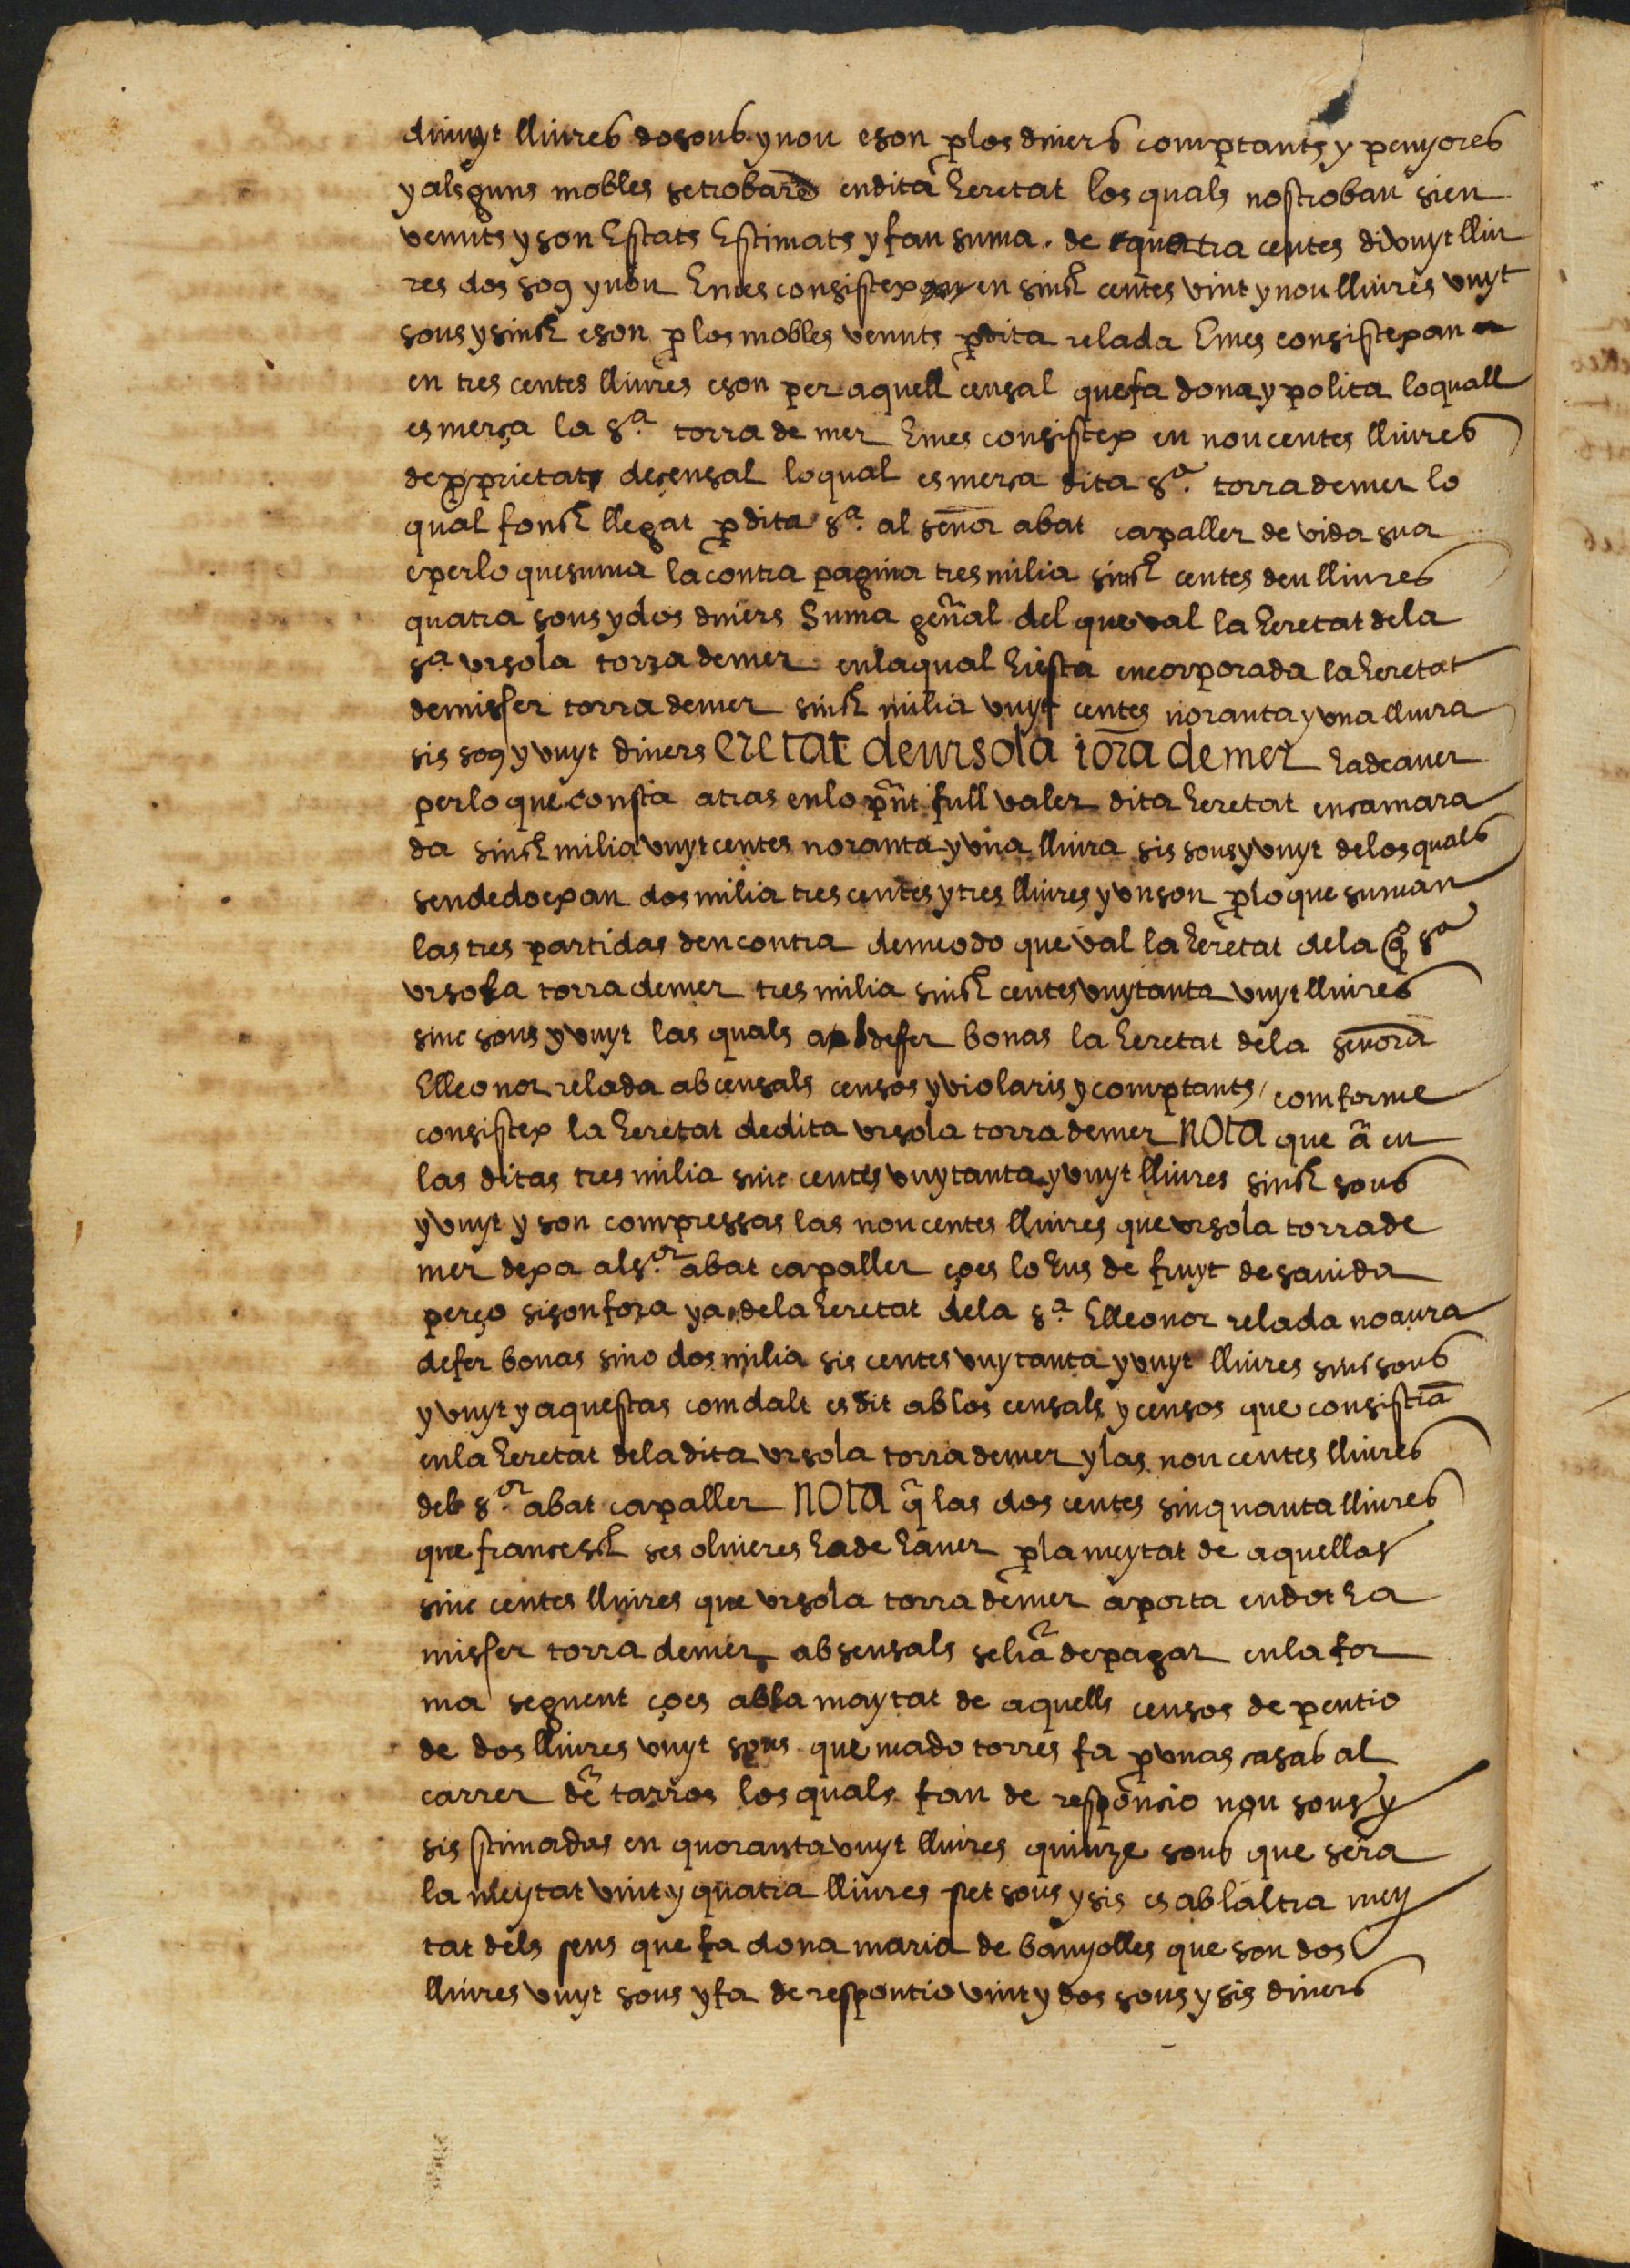 divuyt lliures dosous y nou e son p los diners comptants y penyores
y alsguns mobles se trobare en dita heretat los quals nos troban sien
venuts y son Estats Estimats y fan suma de quatra centes divuyt lliu
res dos sos y nou Emes consistex en sinch centes vint y nou lliures vuyt
sous y sinch e son p los mobles venuts p dita relada Emes consistexan
en tres centes lliures e son per aquell censal que fa dona y polita lo quall
esmerça la sª torra de mer Emes consistex en nou centes lliures
de pprietat de censal lo qual esmersa dita sª torra de mer lo
qual fonch llegat p dita sª al señor abat capaller de vida sua
e per lo que suma la contra pagina tres milia sinch centes deu lliures
quatra sous y dos diners Suma geñal del que val la heretat de la
sª ursola torra de mer en la qual hi esta encorporada la heretat
de misser torra de mer sinch milia vuyt centes noranta y una lliura
sis sos y vuyt diners eretat de ursola torra de mer ha de aver
per lo que consta atras en lo pñt full valer dita heretat encamara
da sinch milia vuyt centes noranta y una lliura sis sous y vuyt de los quals
sen dedoexan dos milia tres centes y tres lliures y un son p lo que suman
las tres partidas den contra de meodo que val la heretat de la q̃ sª
ursola torra de mer tres milia sinch centes vuytanta vuyt lliures
sinc sous y vuyt las quals a de fer bonas la heretat de la señora
Elleonor relada ab censals censos y violaris y comptants comforme
consistex la heretat de dita ursola torra de mer NOTA que ã en
las ditas tres milia sinc centes vuytanta y vuyt lliures sinch sous
y vuyt y son compressas las nou centes lliures que ursola torra de
mer dexa al s.or abat capaller çoes lo hus de fruyt de sa vida
perço si son fora ya de la heretat de la sª Elleonor relada no aura
de fer bonas sino dos milia sis centes vuytanta y vuyt lliures sinc sous
y vuyt y aquestas com dalt es dit ab los censals y censos que consistiã
en la heretat de la dita ursola torra de mer y las nou centes lliures
del s.or abat capaller NOTA q̃ las dos centes sinquanta lliures
que fransesch ses oliveres ha de haver p la meytat de aquellas
sinc centes lliures que ursola torra de mer aporta en dot ha
misser torra de mer ab sensals se liã de pagar en la for
ma seguent çoes ab la maytat de aquells censos de pentio
de dos lliures vuyt sous que mado torres fa p unas casas al
carrer dẽ tarros los quals fan de responcio nou sous y
sis stimadas en quoranta vuyt lliures quinze sous que sera
la meytat vint y quatra lliures set sous y sis es ab laltra mey
tat dels sens que fa dona maria de banyolles que son dos
lliures vuyt sous y fa de respontio vint y dos sous y sis diners